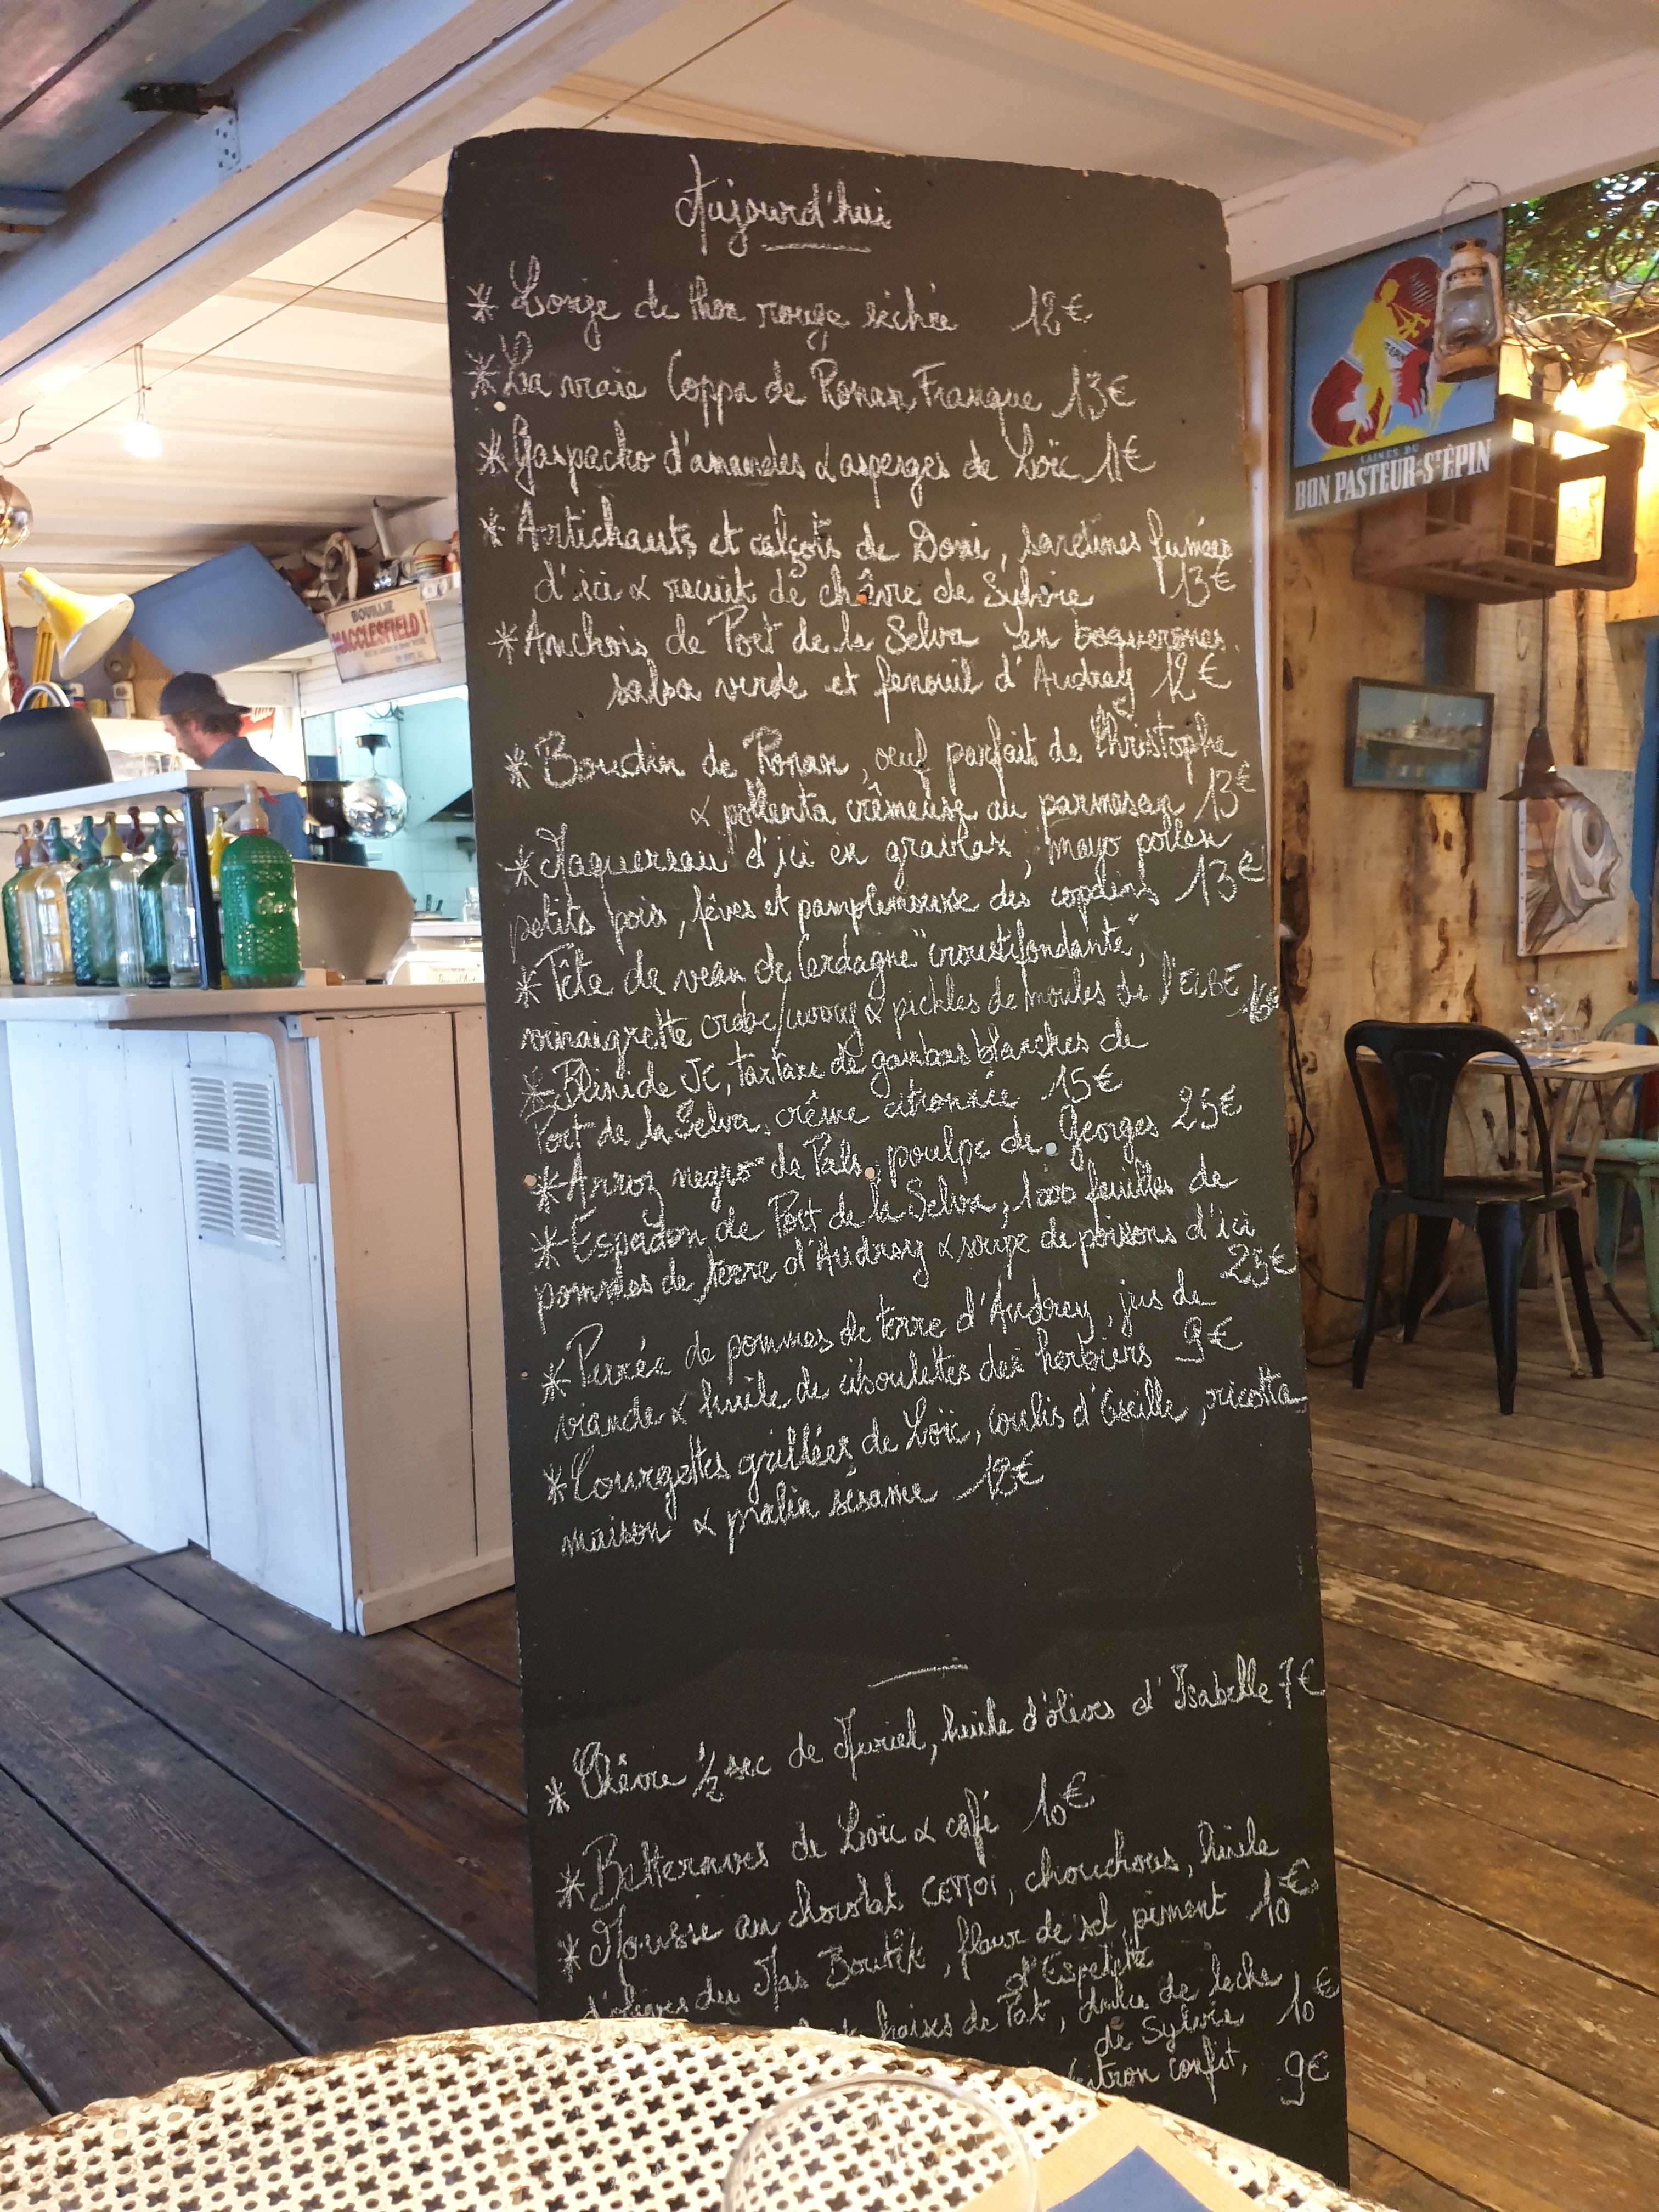 Aujourd'hui
* Longe de thon rouge séchée 12€
* La vraie Coppa de Ronan Franque 13€
* Gaspacho d'amandes & asperges de Loïc 11€
* Artichauts et calçots de Doni, sardines fumées
d'ici & recuit de chèvre de Sylvie 13€
* Anchois de Port de la Selva "en boquerones"
salsa verde et fenouil d'Audrey 12€
* Boudin de Ronan, oeuf parfait de Christophe
& pollenta crêmeuse au parmesan 13€
* Maquereau d'ici en gravlax, mayo pollen
petits pois, fèves et pamplemousse des copains 13€
* Tête de veau de Cerdagne "croustifondante",
vinaigrette crabe/ & pickles de moules de l' 16€
* Blini de Jc, tartare de gambas blanches de
Port de la Selva, crême citronnée 15€
* Arroz negro de Pals, poulpe de Georges 25€
* Espadon de Port de la Selva, 1000 feuilles de
pommes de terre d'Audrey & soupe de poissons d'ici
25€
* Purée de pommes de terre d'Audrey, jus de
viande & huile de ciboulettes des herbiers 9€
* Courgettes grillées de Loïc, coulis d'Oseille, ricotta
maison & pralin sésame 12€
* Chêvre 1/2 sec de Muriel, huile d'olives d'Isabelle 7€
* Betteraves de Loïc & café 10€
* Mousse au chocolat CEMOI, chouchous, huile
d'olives du Mas Boutêt, fleur de sel, piment 10€
d'Espelette
fraises de Pat, dulce de leche
de Sylvie 10€
citron confit, 9€
LAINES DU
BON PASTEUR-ST ÉPIN
BOUILLIE
MACCLESFIELD!